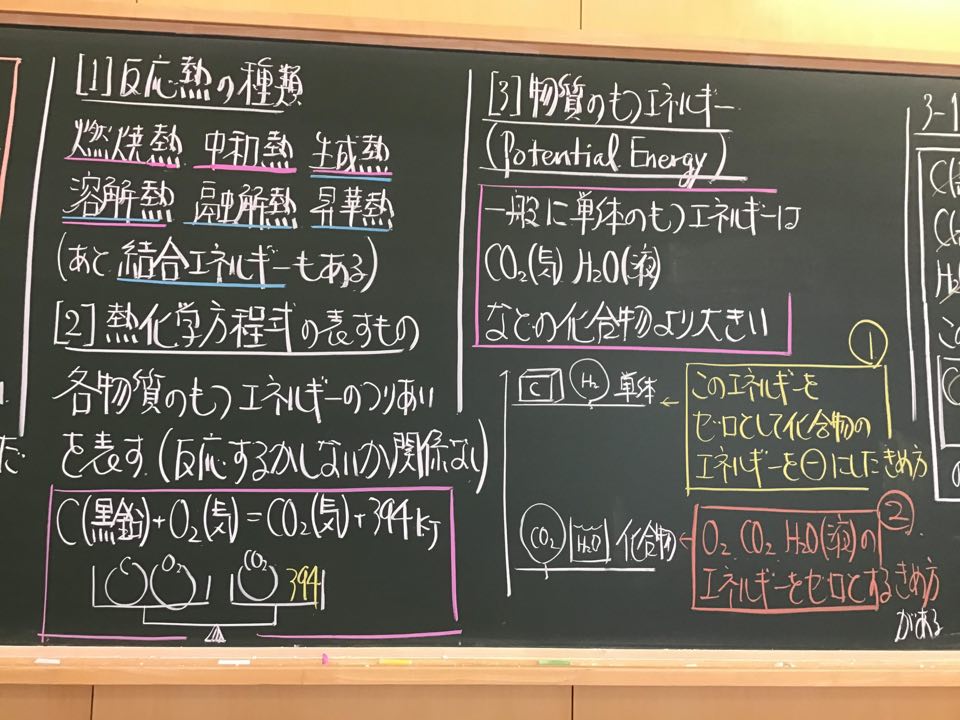 [1]反応熱の種類
燃焼熱 中和熱 生成熱
溶解熱 融解熱 昇華熱
(あと結合エネルギーもある)
[2]熱化学方程式の表すもの
各物質のもつエネルギーのつりあい
を表す(反応するかしないか関係ない)
C(黒鉛)+O₂(気)=CO₂(気)+394kJ
C O₂ CO₂ 394
[3]物質のもつエネルギー
(Potential Energy)
一般に単体のもつエネルギーは
CO₂(気) H₂O(液)
などの化合物より大きい
①
C H₂ 単体 ←
このエネルギーを
ゼロとして化合物の
エネルギーを⊖にしたきめ方
②
CO₂ H₂O 化合物 ←
O₂ CO₂ H₂O(液)の
エネルギーをゼロとするきめ方
がある
3-1
H₂
こ